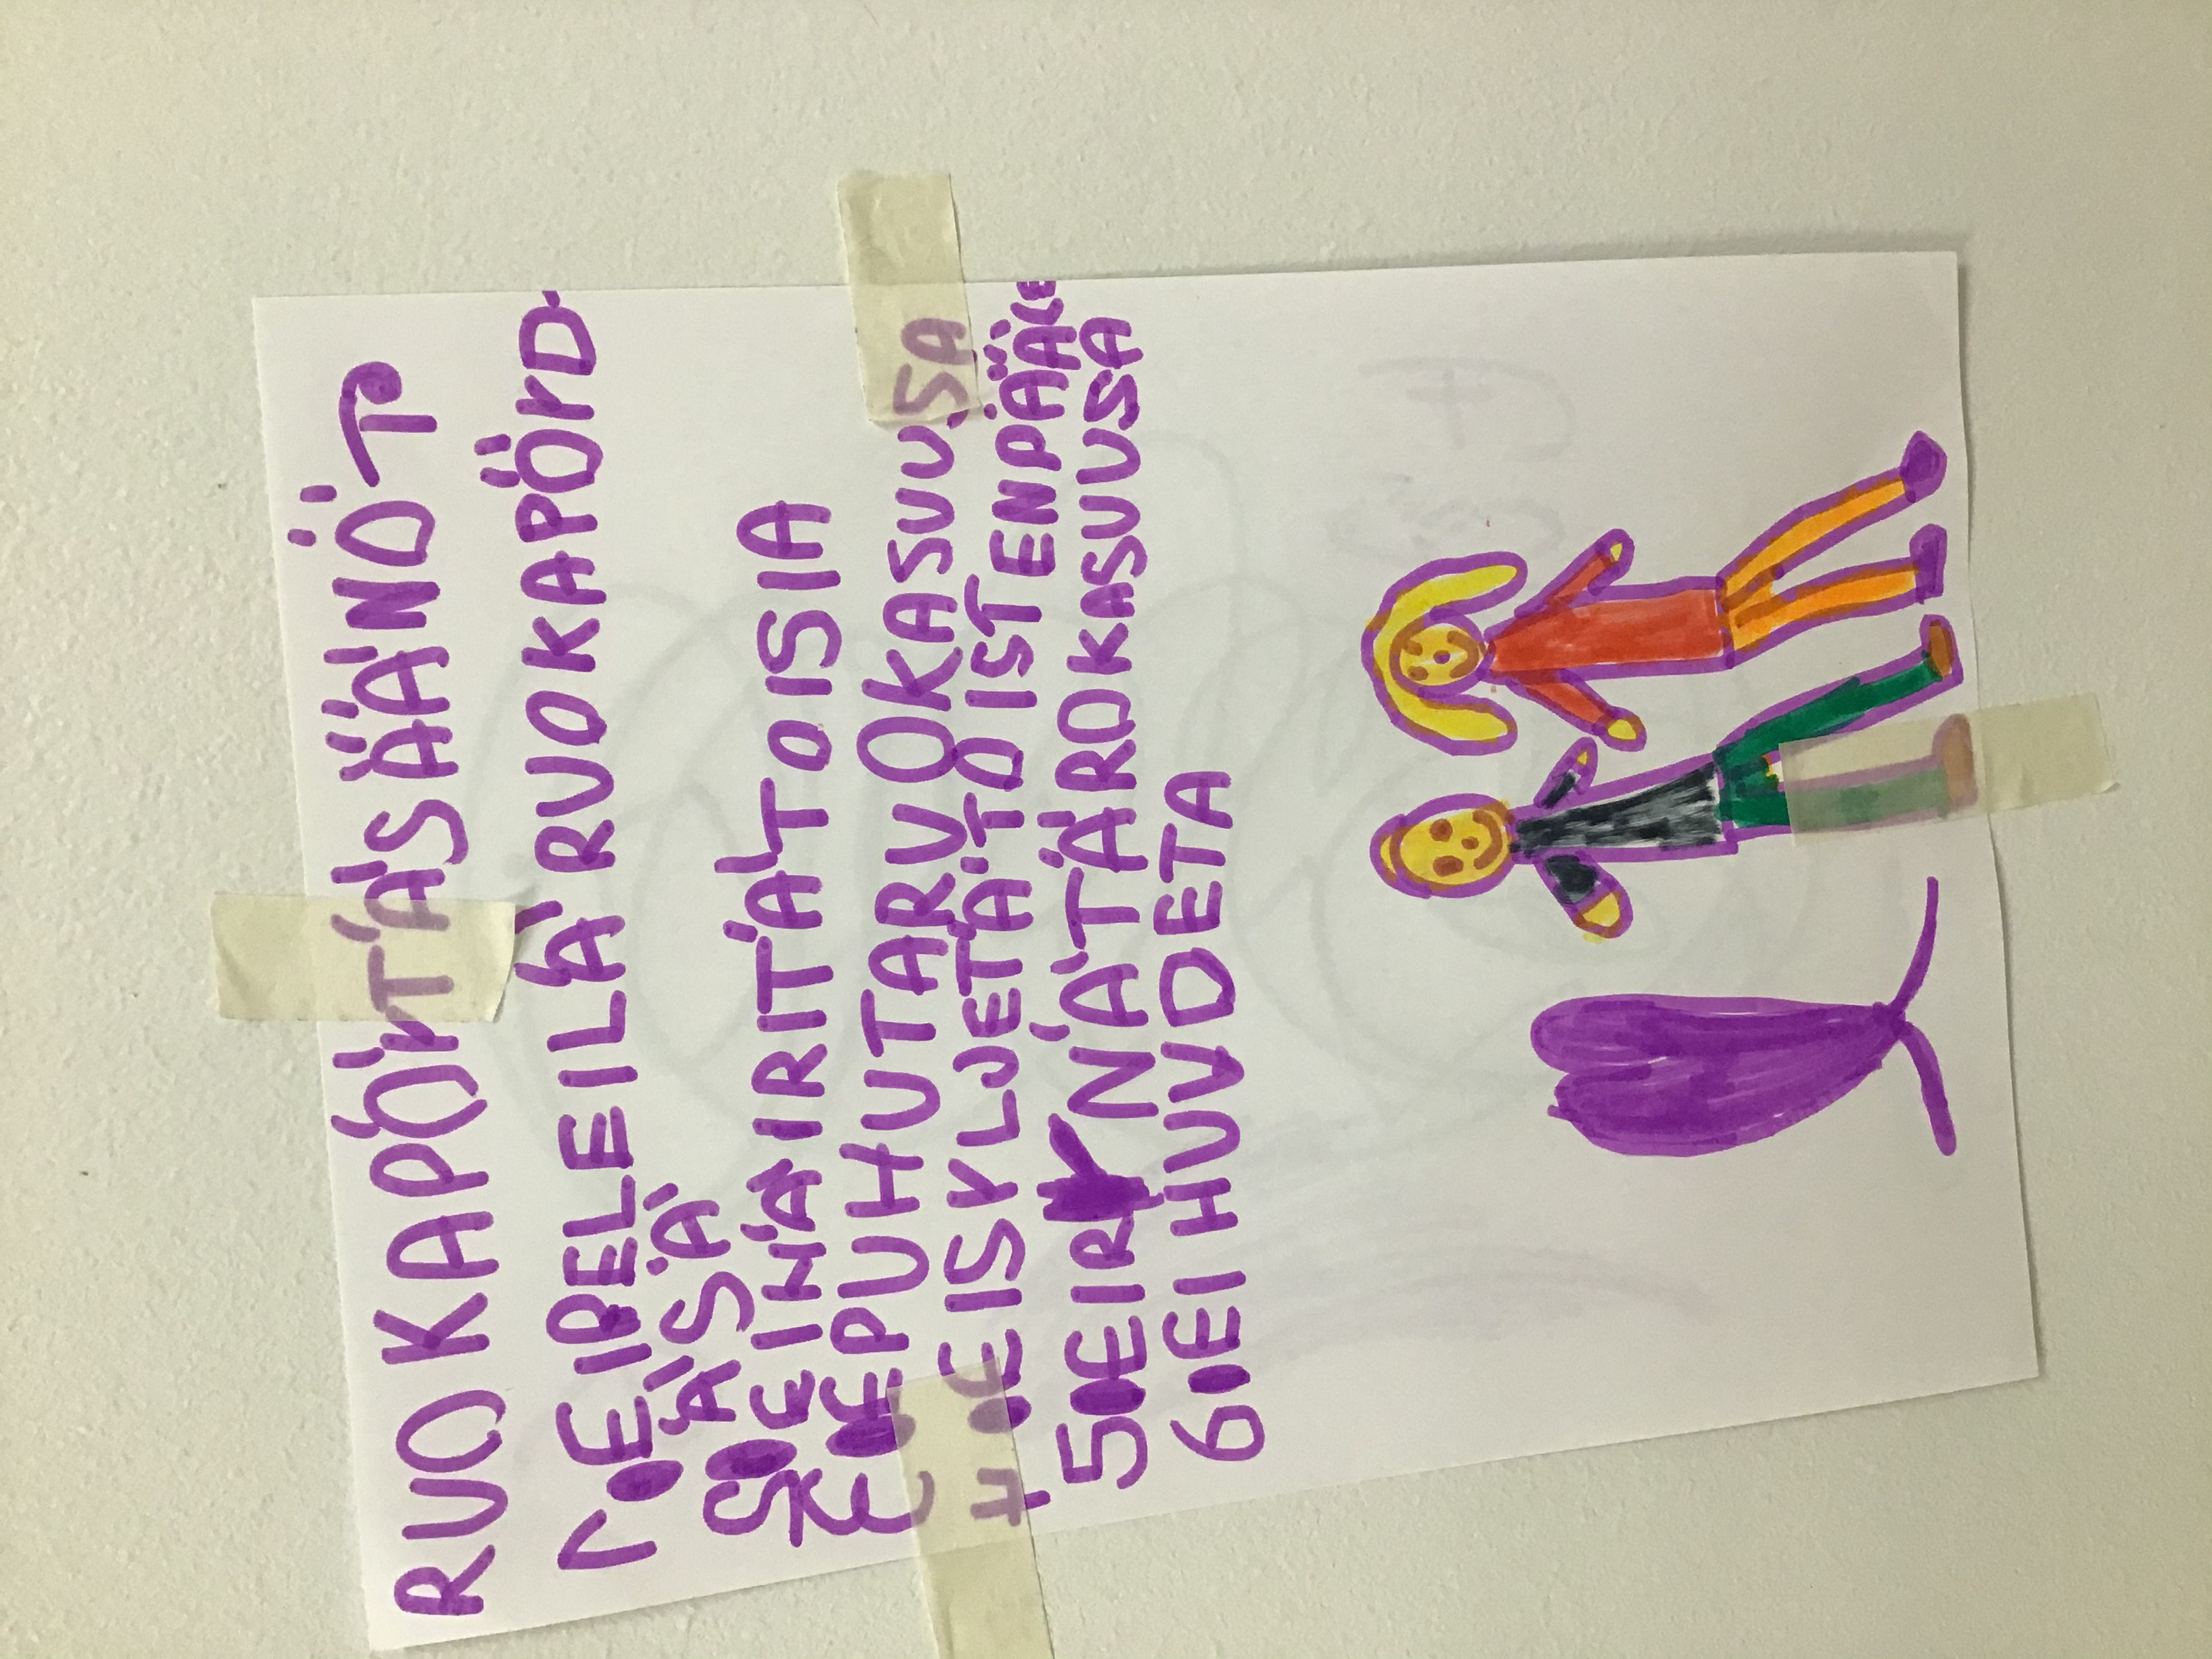 RUOKAPÖYTÄSÄÄNÖT
1 EI PELEILÄ RUOKAPÖYD
ÄSÄ
2 EI HÄIRITÄ TOISIA
3 EI PUHUTA RUOKA SUUSA
4 EI SYLJETÄ TOISTEN PÄÄLE
5 EI NÄTÄ ROKA SUUSA
6 EI HUUDETA